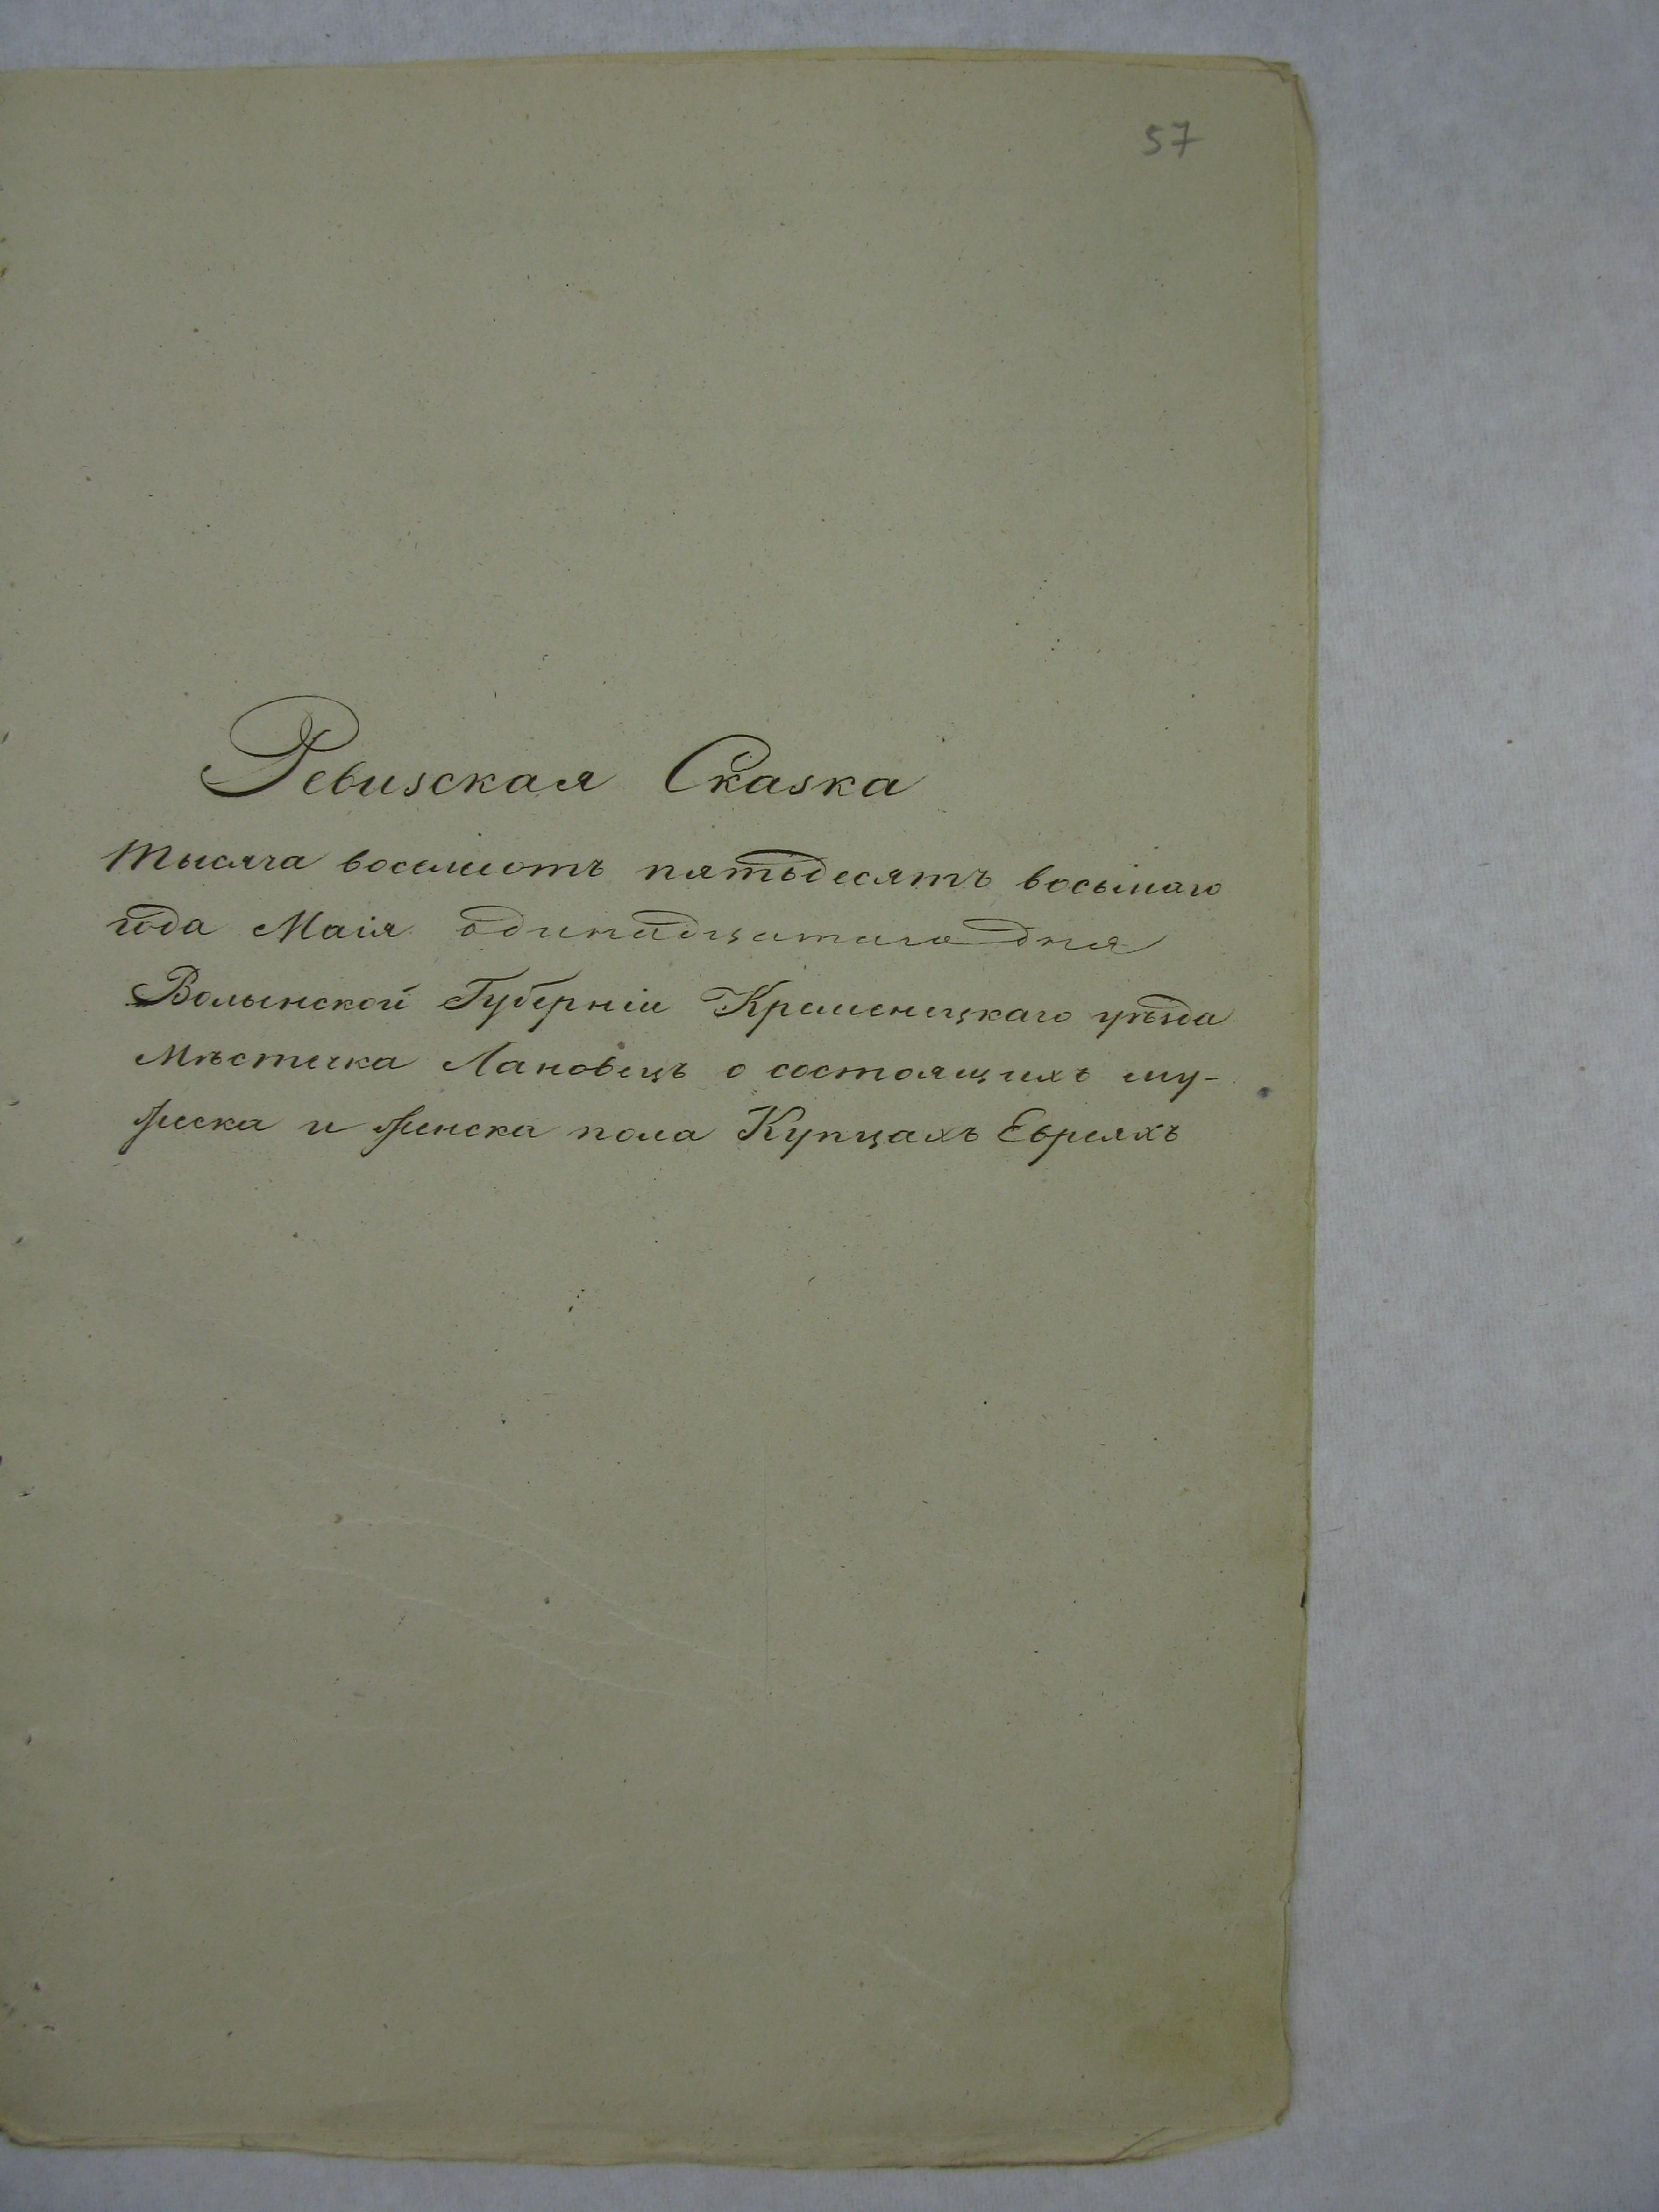 57
Ревизская Сказка
Тысяча восемсотъ пятьдесятъ восьмаго
года Маія одинадцатаго дня
Волынской Губерніи Кременецкаго уѣзда
Мѣстечка Лановецъ о состоящихъ му-
жеска и женска пола Купцахъ Евреяхъ